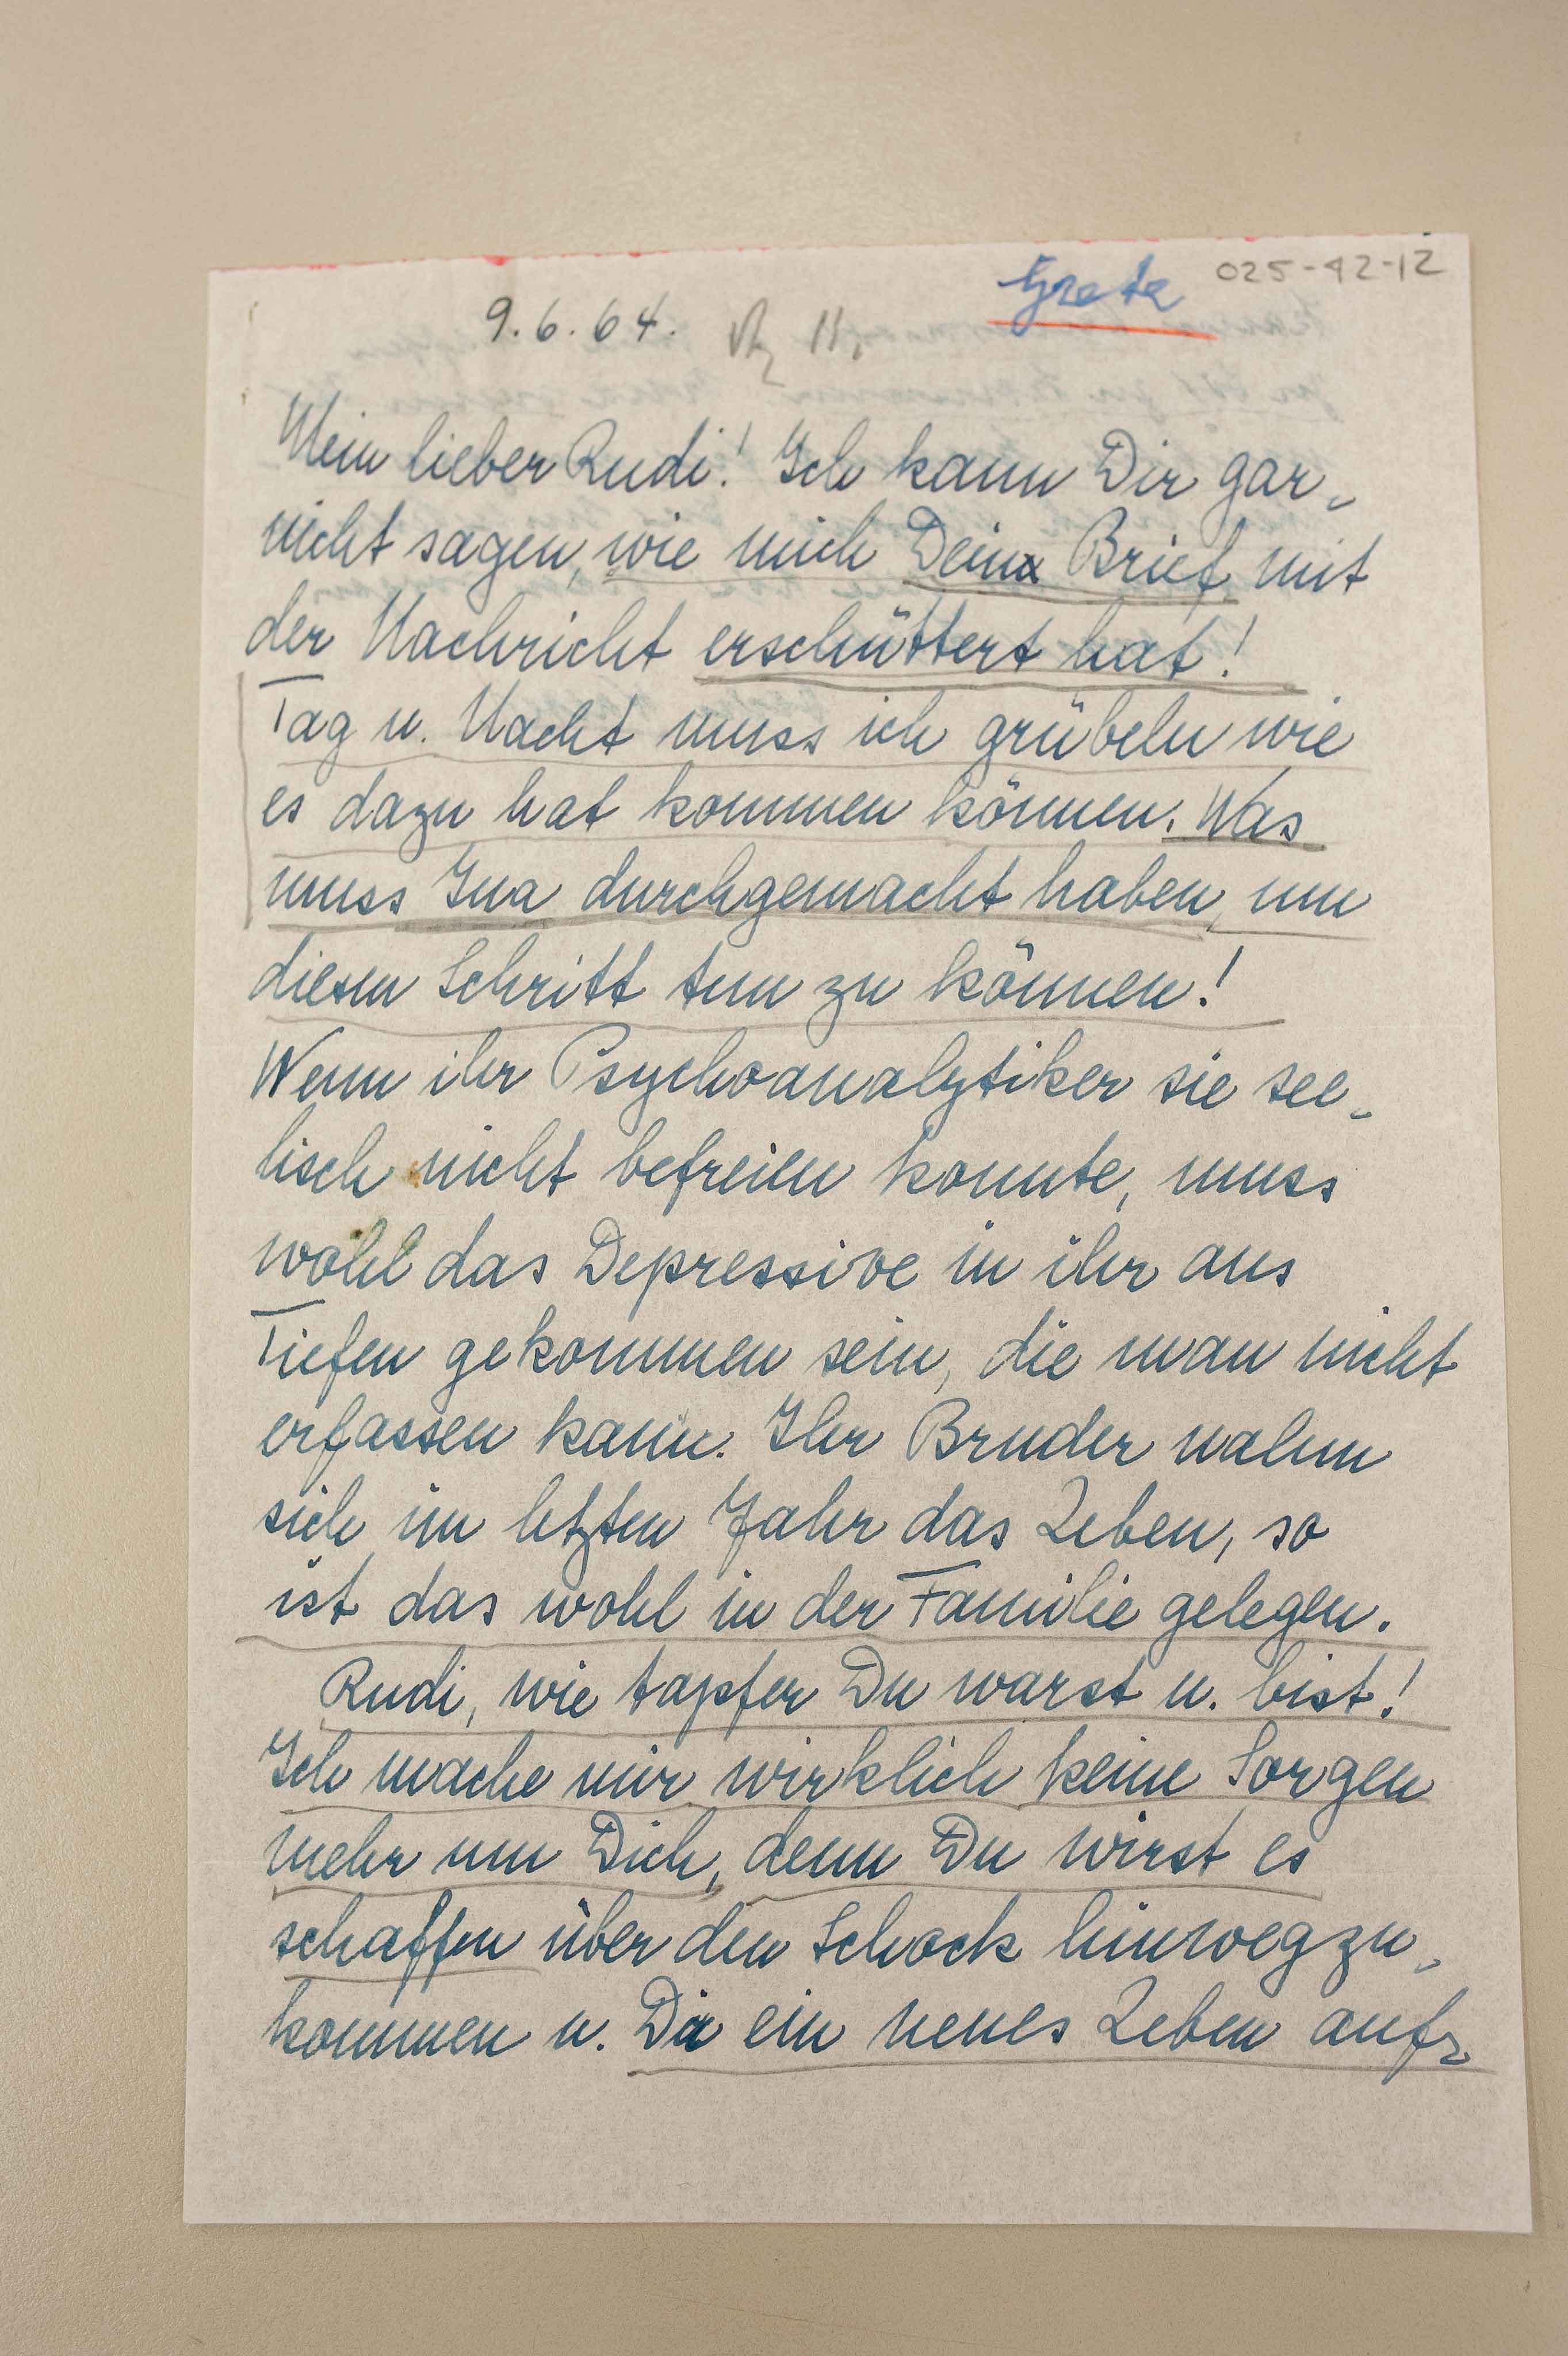 Grete 025-42-12
9.6.64. 11.
Mein lieber Rudi! Ich kann Dir gar-
nicht sagen, wie mich Dein Brief mit
der Nachricht erschüttert hat!
Tag u. Nacht muss ich grübeln wie
es dazu hat kommen können. Was
muss Ina durchgemacht haben, um
diesen Schritt tun zu können!
Wenn ihr Psychoanalytiker sie see-
lisch nicht befreien konnte, muss
wohl das Depressive in ihr aus
Tiefen gekommen sein, die man nicht
erfassen kann. Ihr Bruder nahm
sich im letzten Jahr das Leben, so
ist das wohl in der Familie gelegen.
Rudi, wie tapfer Du warst u. bist!
Ich mache mir wirklich keine Sorgen
mehr um Dich, denn Du wirst es
schaffen über den Schock hinwegzu-
kommen u. Dir ein neues Leben auf-